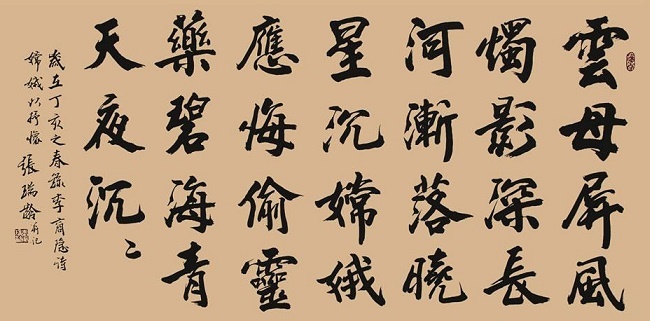 雲母屏風
燭影深長
河漸落曉
星沉嫦娥
應悔偷靈
藥碧海青
天夜沉〻
歲在丁亥之春錄李商隐诗
嫦娥以抒懷張瑞齡并记